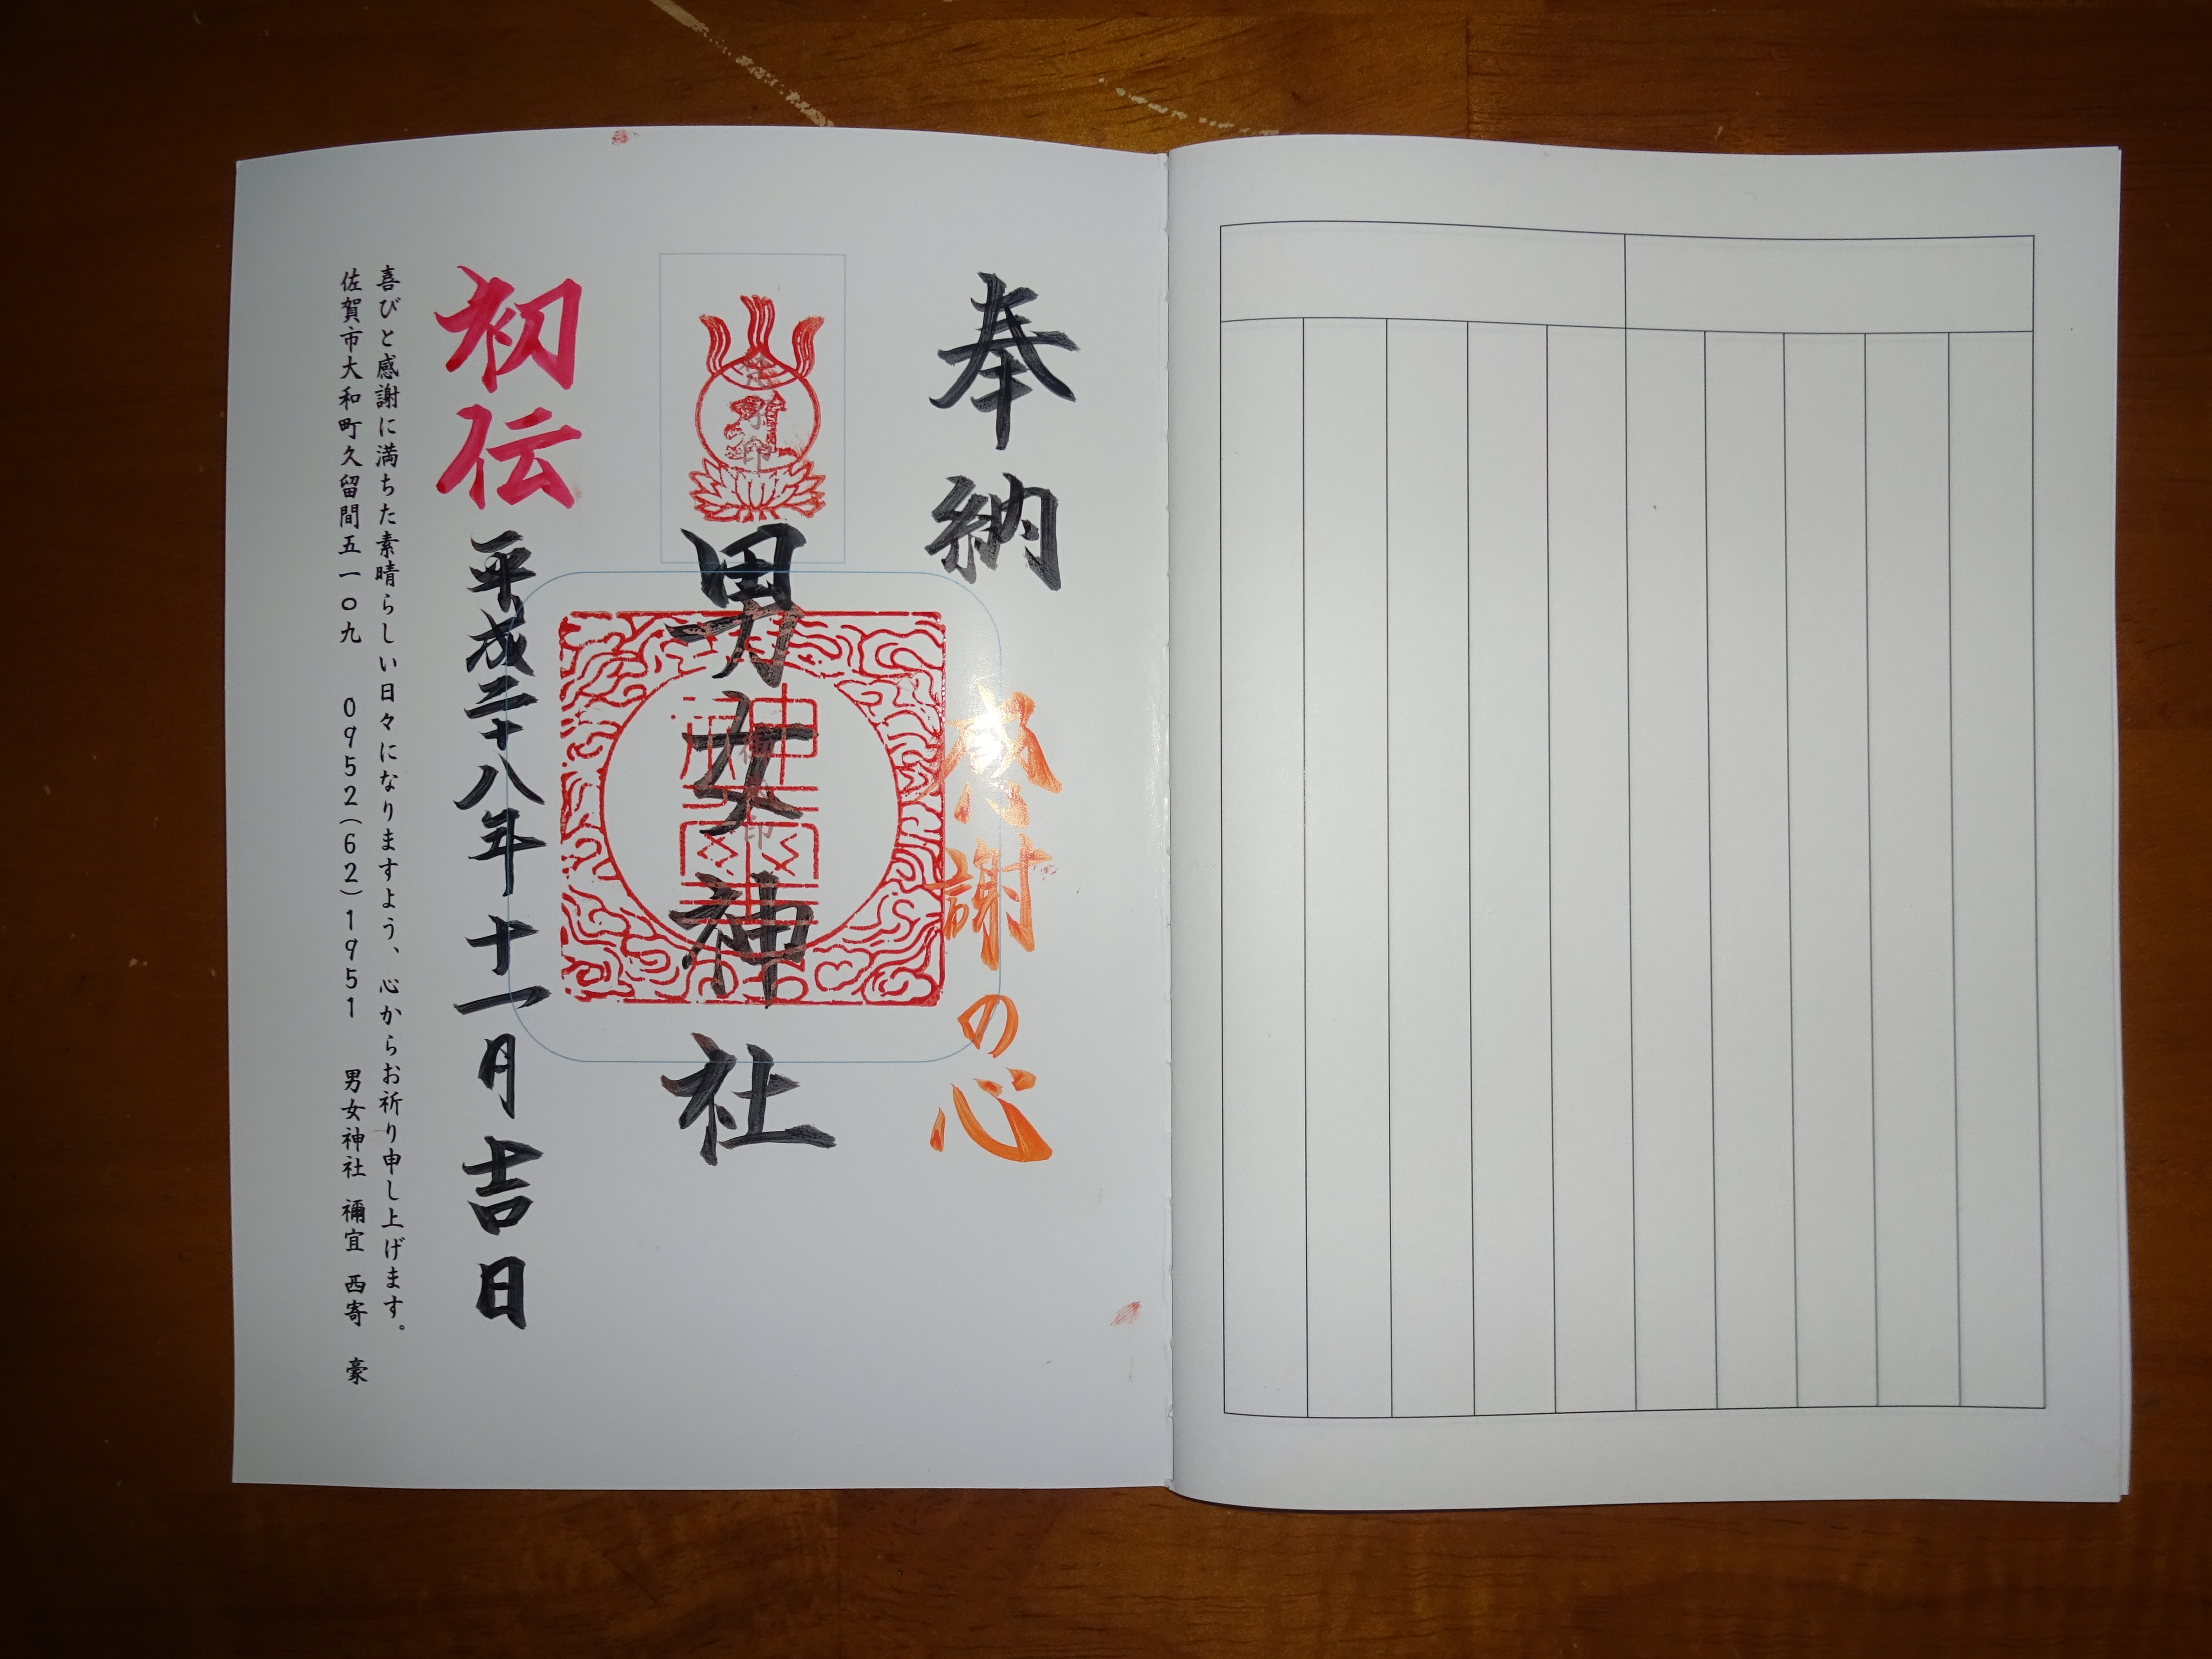 奉納
感謝の心
男女神社
初伝
平成二十八年十一月吉日
喜びと感謝に満ちた素晴らしい日々になりますよう、心からお祈り申し上げます。
佐賀市大和町久留間五一〇九　0952(62)1951　男女神社 禰宜 西寄 豪